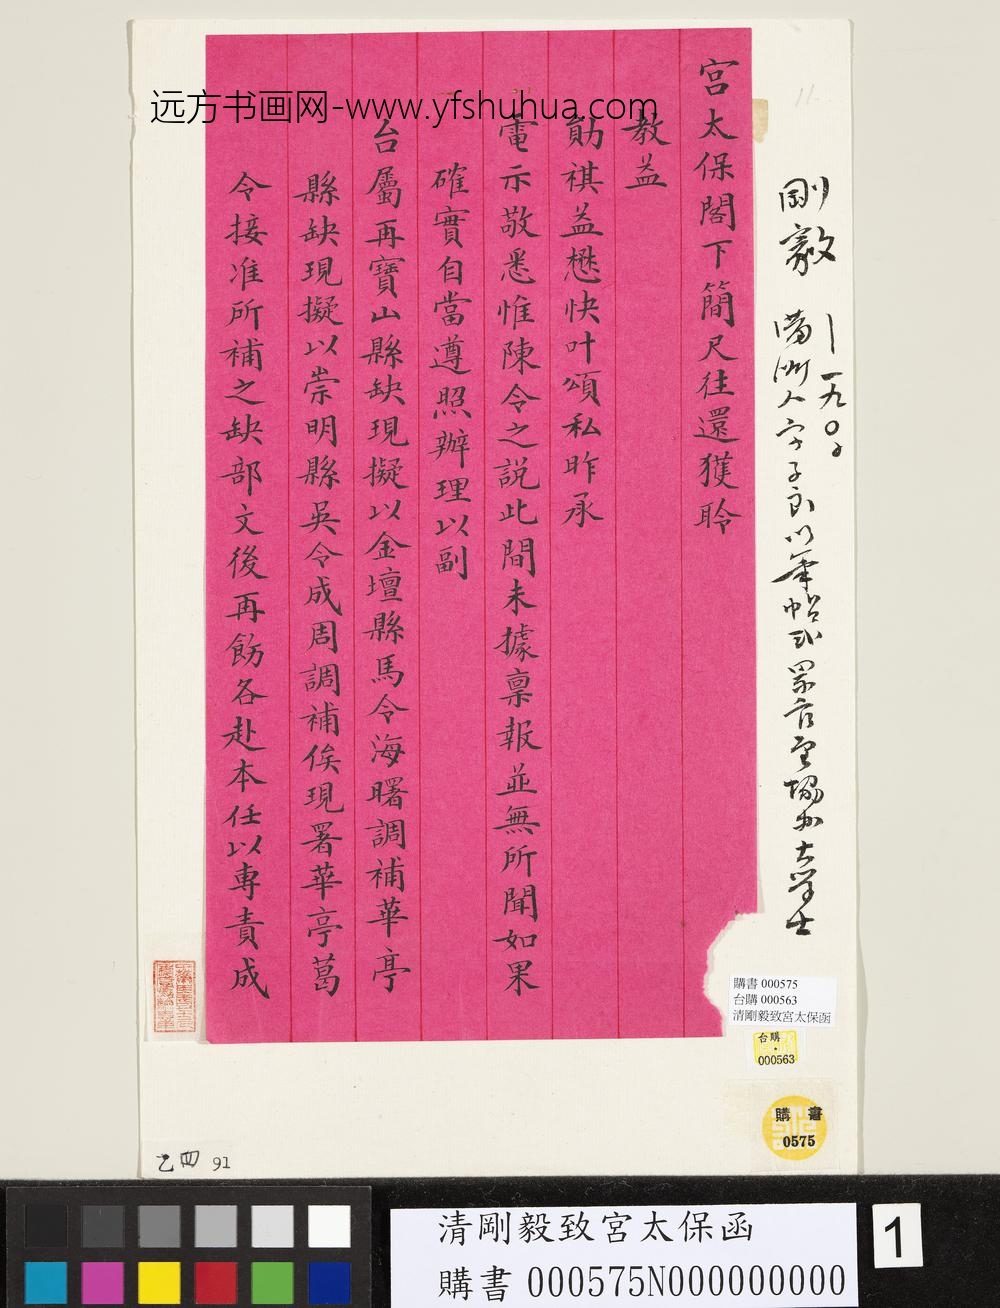 远方书画网-www.yfshuhua.com
宮太保閣下簡尺往還獲聆
教益
勛祺益懋快叶頌私昨承
電示敬悉惟陳令之說此間未據稟報並無所聞如果
確實自當遵照辦理以副
台屬再寶山縣缺現擬以金壇縣馬令海曙調補華亭
縣缺現擬以崇明縣吳令成周調補俟現署華亭葛
令接准所補之缺部文後再飭各赴本任以專責成
剛毅 —一九〇〇
滿洲人字子良以筆帖式累官至協办大學士
購書 000575
台購 000563
清剛毅致宮太保函
台購
000563
購書
0575
乙四 91
清剛毅致宮太保函
購書000575N000000000
1